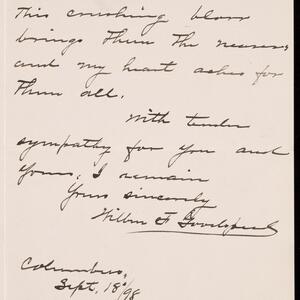 This crushing blow
brings Them The nearer,
and my heart aches for
Them all.
With tender
sympathy for you and
yours, I remain
Yours sincerely
Wilbur F Goodspeed
Columbus,
Sept. 18" 98